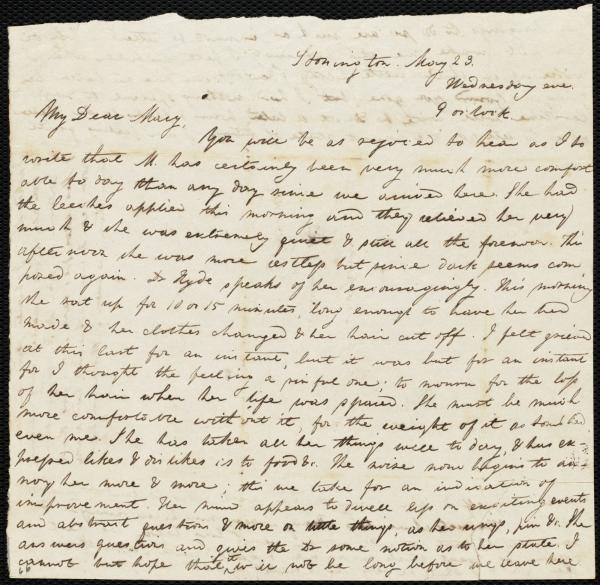 Stonington. May 23.
Wednesday eve.
9 o'clock.
My Dear Mary,
You will be as rejoiced to hear as I to
write that M. has certainly been very much more comfort
able to day than any day since we arrived here. She had
the leeches applied this morning and they relieved her very
much & she was extremely quiet & still all the forenoon. This
afternoon she was more restless but since dark seems com
posed again. Dr Hyde speaks of her encouragingly. This morning
she sat up for 10 or 15 minutes, long enough to have her bed
made & her clothes changed & her hair cut off. I felt grieved
at this last for an instant, but it was but for an instant
for I thought the feeling a sinful one; to mourn for the loss
of her hair when her life was spared. She must be much
more comfortable without it, for the weight of it
even me. She has taken all her things well to day, & has ex-
pressed likes & dislikes as to food &c. The noise now begins to an-
noy her more & more; this we take for an indication of
improvement. Her mind appears to dwell less on exciting events
and abstract questions & more on little things, as her rings, pin &c. She
answers questions and gives the Dr some notion as to her state. I
cannot but hope that it will not be long before we leave here